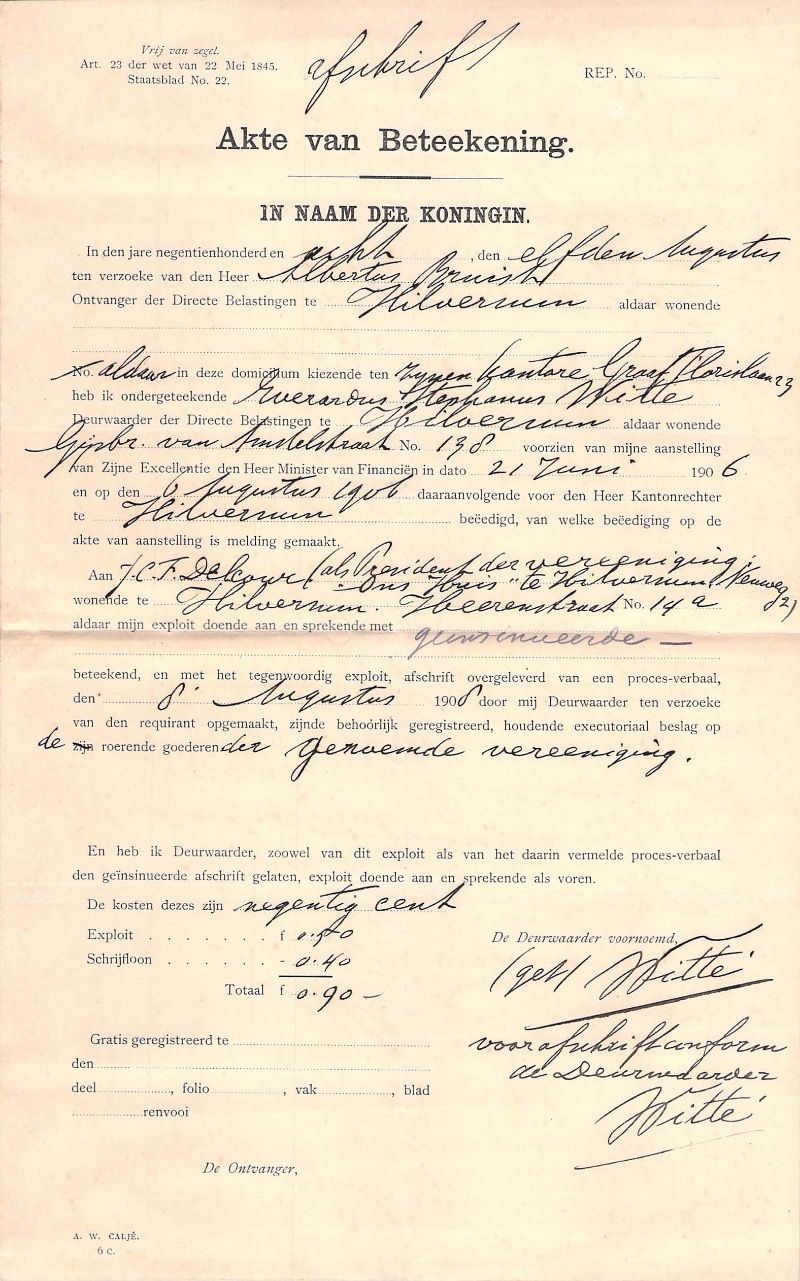 Vrij van zegel.
Art. 23 der wet van 22 Mei 1845.
Staatsblad No. 22.
afschrift
REP. No.
Akte van Beteekening.
IN NAAM DER KONINGIN.
In den jare negentienhonderd en acht, den elfden Augustus
ten verzoeke van den Heer Albertus Bruist
Ontvanger der Directe Belastingen te Hilversum aldaar wonende
No. aldaar in deze domicilium kiezende ten zynen kantore Graaf Florislaan 23
heb ik ondergeteekende Everardus Stephanus Witte
Deurwaarder der Directe Belastingen te Hilversum aldaar wonende
Gijsbr. van Amstelstraat No. 138 voorzien van mijne aanstelling
van Zijne Excellentie den Heer Minister van Financiën in dato 21 Juni 1906
en op den 6 Augustus 1906 daaraanvolgende voor den Heer Kantonrechter
te Hilversum beëedigd, van welke beëediging op de
akte van aanstelling is melding gemaakt.
Aan J.C.F. (als President der vereeniging
"Ons Huis" te Hilversum Neuweg 2)
wonende te Hilversum. Heerenstraat No. 14a
aldaar mijn exploit doende aan en sprekende met
geinsinueerde —
beteekend, en met het tegenwoordig exploit, afschrift overgeleverd van een proces-verbaal,
den 8 Augustus 1908 door mij Deurwaarder ten verzoeke
van den requirant opgemaakt, zijnde behoórlijk geregistreerd, houdende executoriaal beslag op
de zijn roerende goederen der genoemde vereeniging.
En heb ik Deurwaarder, zoowel van dit exploit als van het daarin vermelde proces-verbaal
den geïnsinueerde afschrift gelaten, exploit doende aan en sprekende als voren.
De kosten dezes zijn negentig cent
Exploit . . . . . . . f 0.50
Schrijfloon . . . . . . - 0.40
Totaal f 0.90 —
De Deurwaarder voornoemd,
(get) Witte
voor afschrift conform
de Deurwaarder
Witte
Gratis geregistreerd te
den
deel, folio, vak, blad
renvooi
De Ontvanger,
A. W. CALJÉ.
6 c.